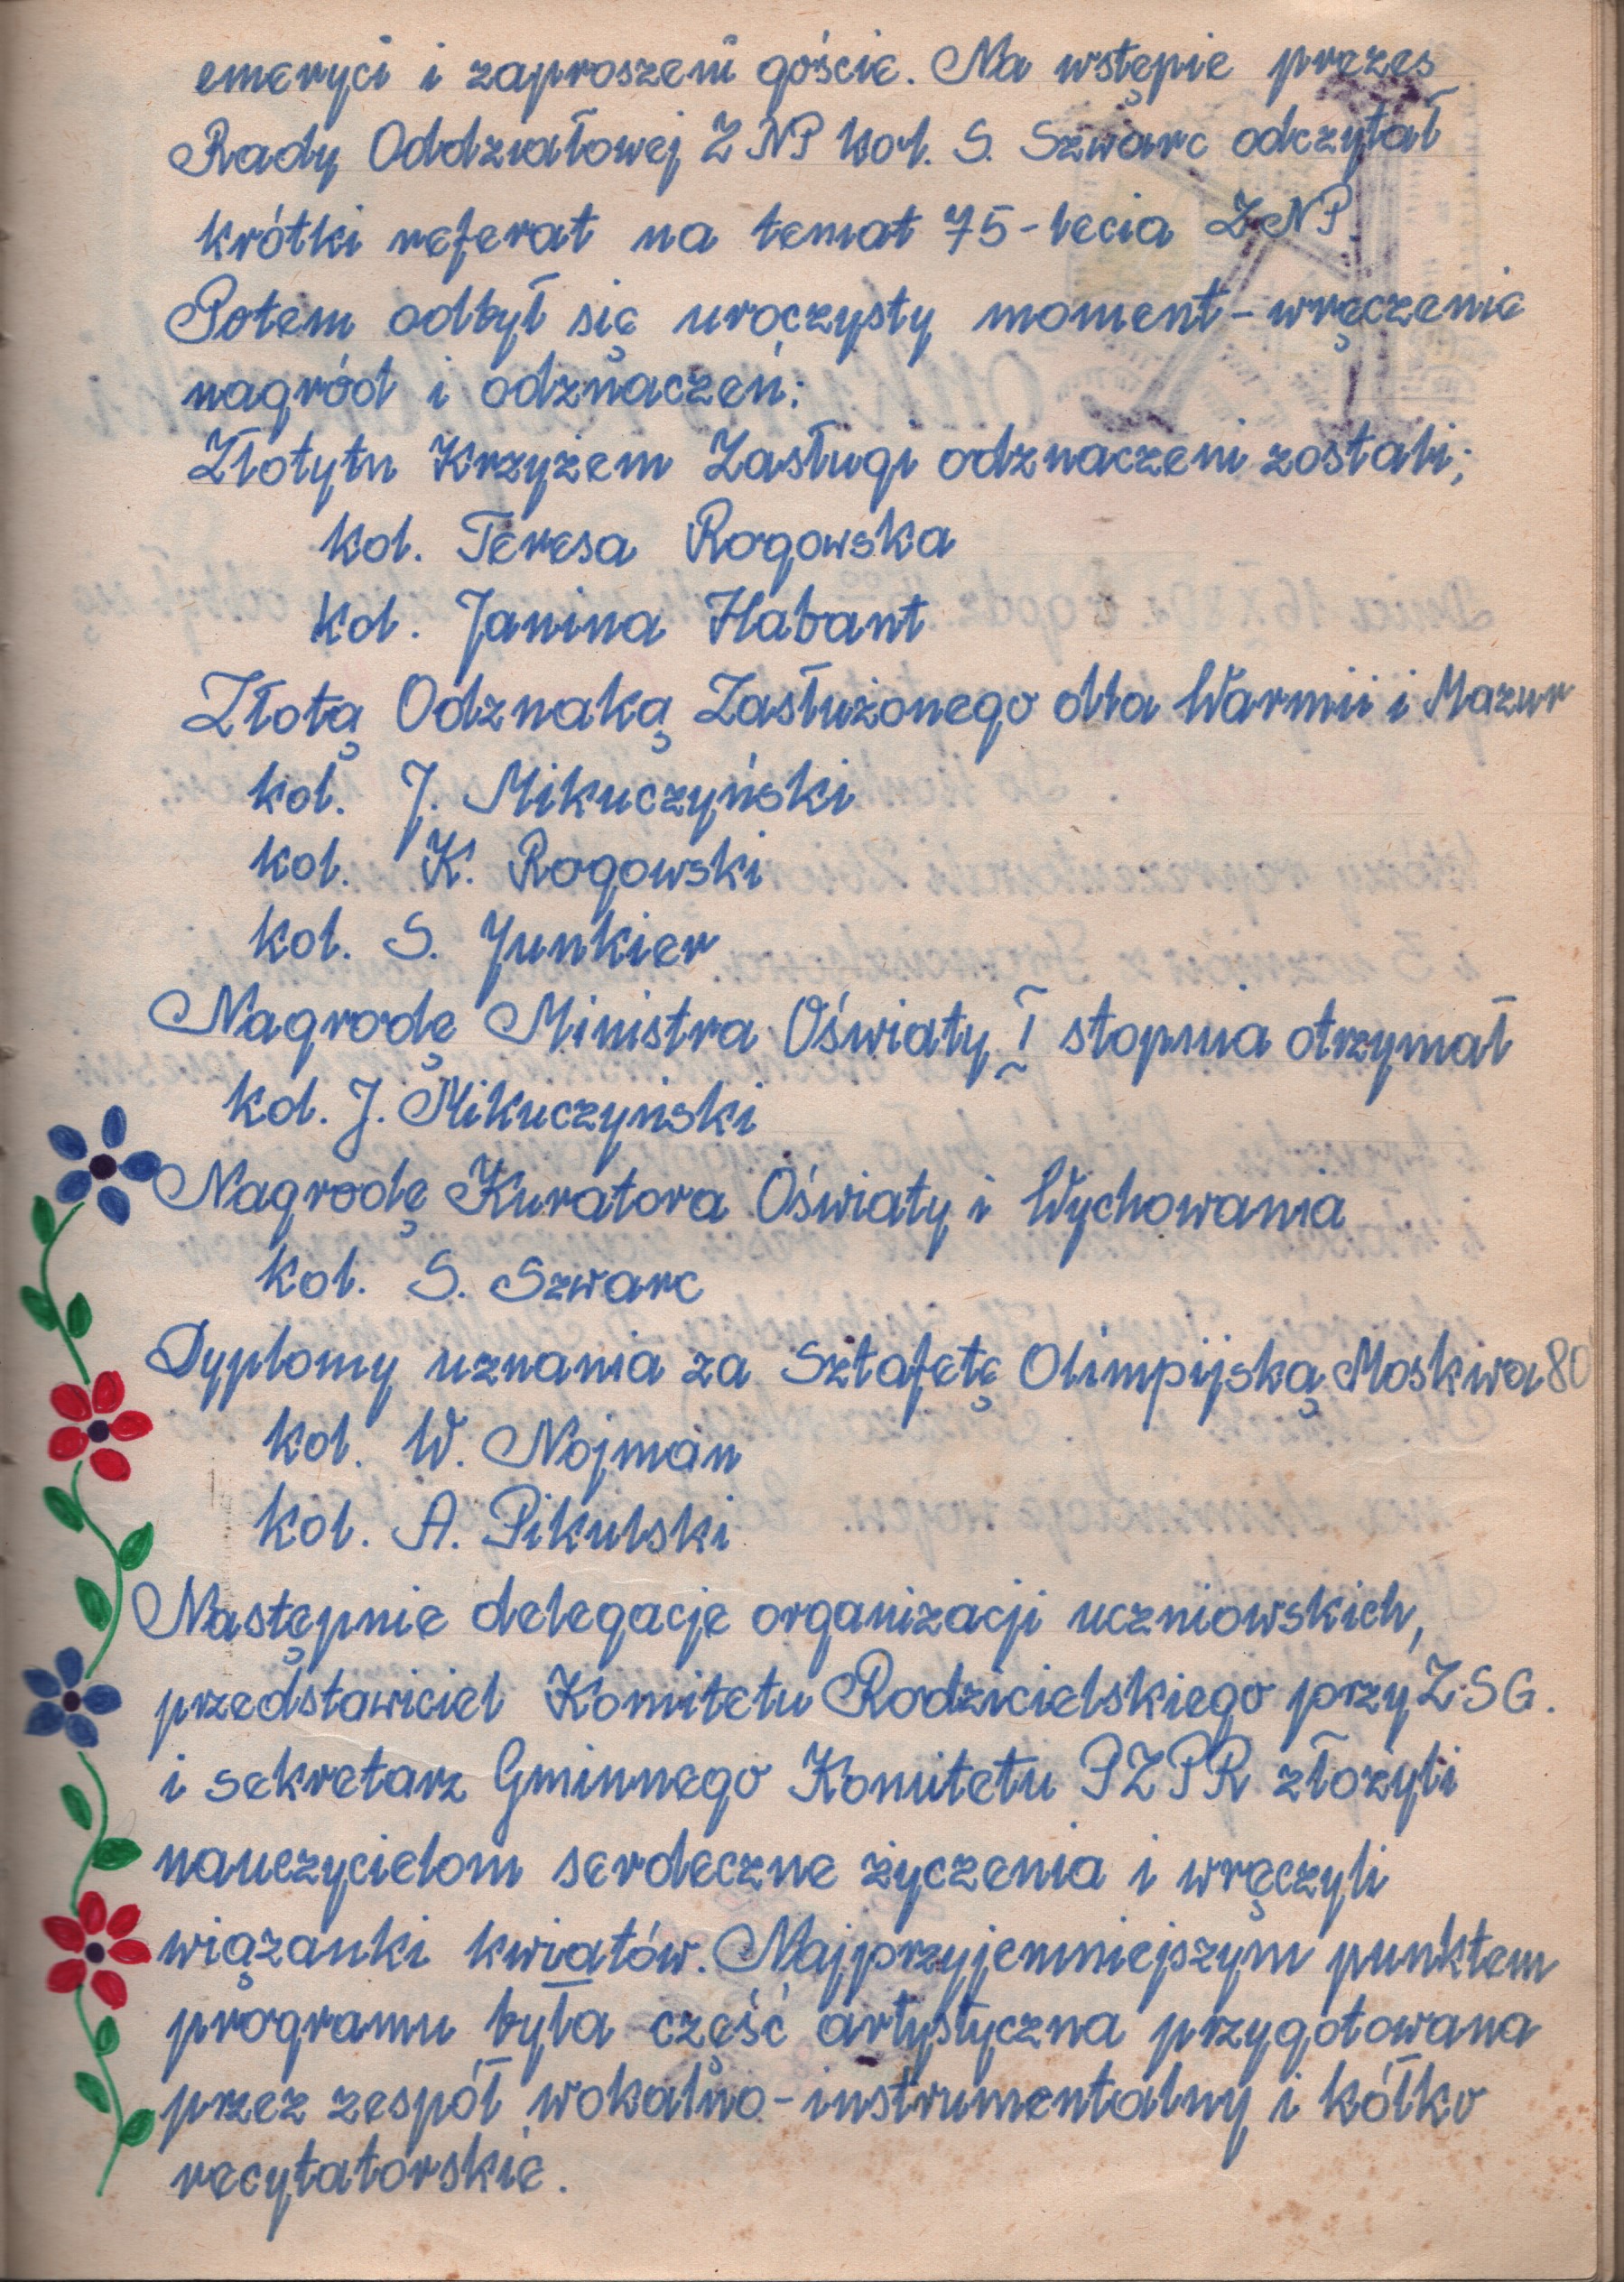 emeryci i zaproszeni goście. Na wstępie prezes
Rady Oddziałowej ZNP kol. S. Szwarc odczytał
krótki referat na temat 75-lecia ZNP
Potem odbył się uroczysty moment - wręczenie
nagród i odznaczeń:
Złotytn Krzyżem Zasługi odznaczeni zostali;
kol. Teresa Rogowska
kol. Janina Habant
Złotą Odznaką Zasłużonego dla Warmii i Mazur
kol. J. Mikuczyński
kol. K. Rogowski
kol. S. Junkier
Nagrodę Ministra Oświaty I stopnia otrzymał
kol. J. Mikuczyński
Nagrodę Kuratora Oświaty i Wychowania
kol. S. Szwarc
Dyplomy uznania za Sztafetę Olimpijską Moskwa 80
kol. W. Nojman
kol. A. Pikulski
Następnie delegacje organizacji uczniowskich,
przedstawiciel Komitetu Rodzicielskiego przy Z.SG.
i sekretarz Gminnego Komitetu PZPR złożyli
nauczycielom serdeczne życzenia i wręczyli
wiązanki kwiatów. Najprzyjemniejszym punktem
programu była część artystyczna przygotowana
przez zespół wokalno-instrumentalny i kółko
recytatorskie.